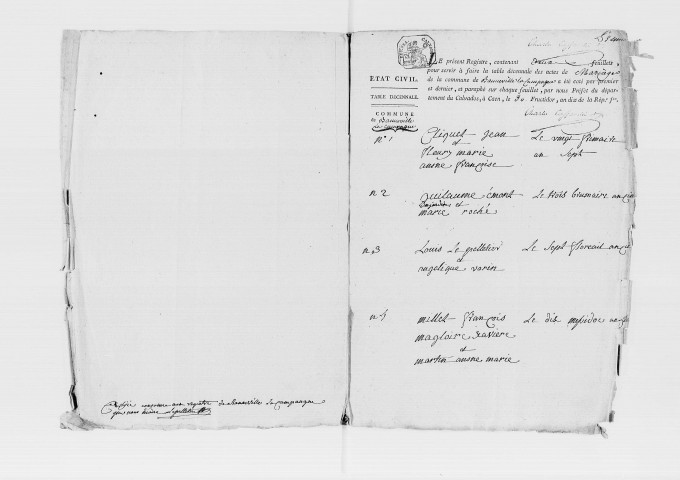 conforme aux registres de Banneville la Campagne
que nous Maire Lepelletier
ETAT CIVIL.
TABLE DÉCENNALE.
COMMUNE
de Banneville
la Campagne
LE présent Registre, contenant feuillets,
pour servir à faire la table décennale des actes de Mariage
de la commune de Banneville la Campagne a été coté par premier
et dernier, et paraphé sur chaque feuillet, par nous Préfet du dépar-
tement du Calvados, à Caen, le Fructidor, an dix de la Rép. Fse.
n° 1 Cliquet Jean Le vingt frimaire
et an sept
fleury marie
anne françoise
n 2 Guilaume émont Le trois brumaire an
et
marie roché
n 3 Louis Le pelletier Le sept floreal an
et
angelique varin
n 4 millet françois Le dix an
magloire xaviere
et
martin anne marie